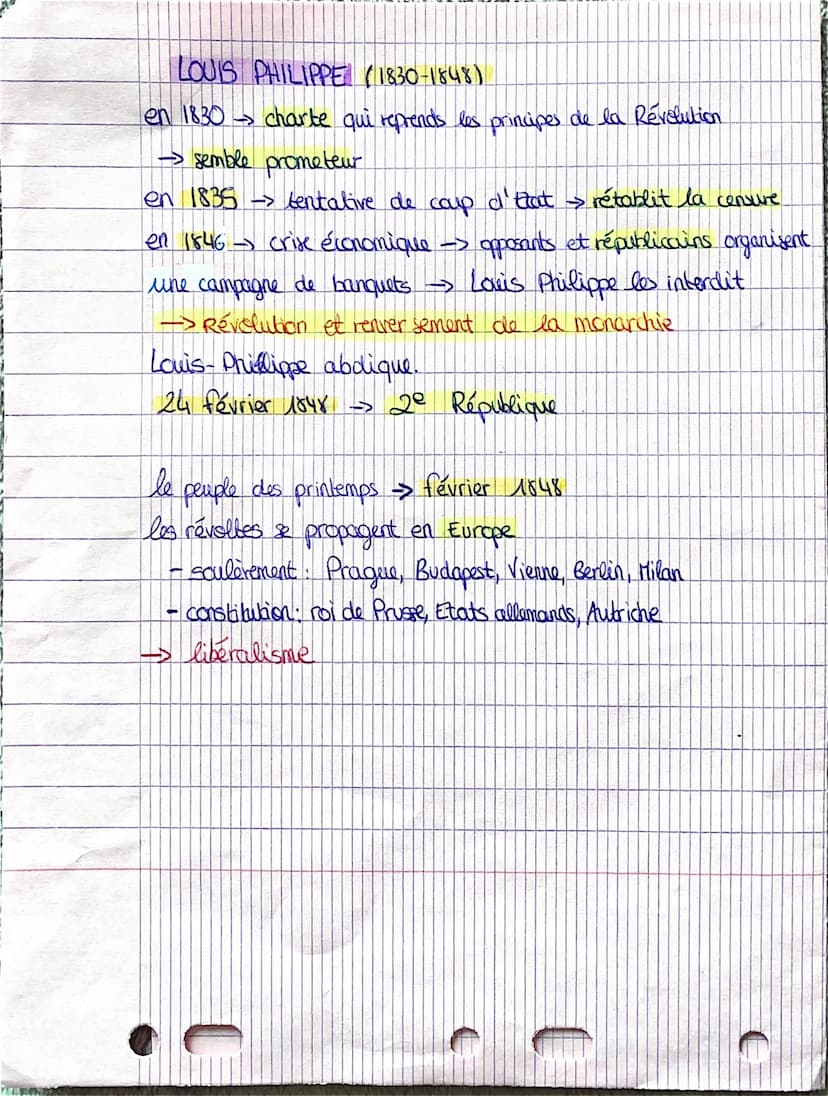 LOUIS PHILIPPE (1830-1848)
en 1830 → charte qui reprends les principes de la Révolution
→ semble prometeur
en 1835 → tentative de coup d'État → rétablit la censure
en 1846 → crise économique → opposants et républicains organisent
une campagne de banquets → Louis Philippe les interdit
→ Révolution et renversement de la monarchie
Louis-Phillippe abdique.
24 février 1848 → 2e République
le peuple des printemps → février 1848
les révoltes se propagent en Europe
- soulèrement : Prague, Budapest, Vienne, Berlin, Milan
- constitution : roi de Prusse, Etats allemands, Autriche
→ libéralisme